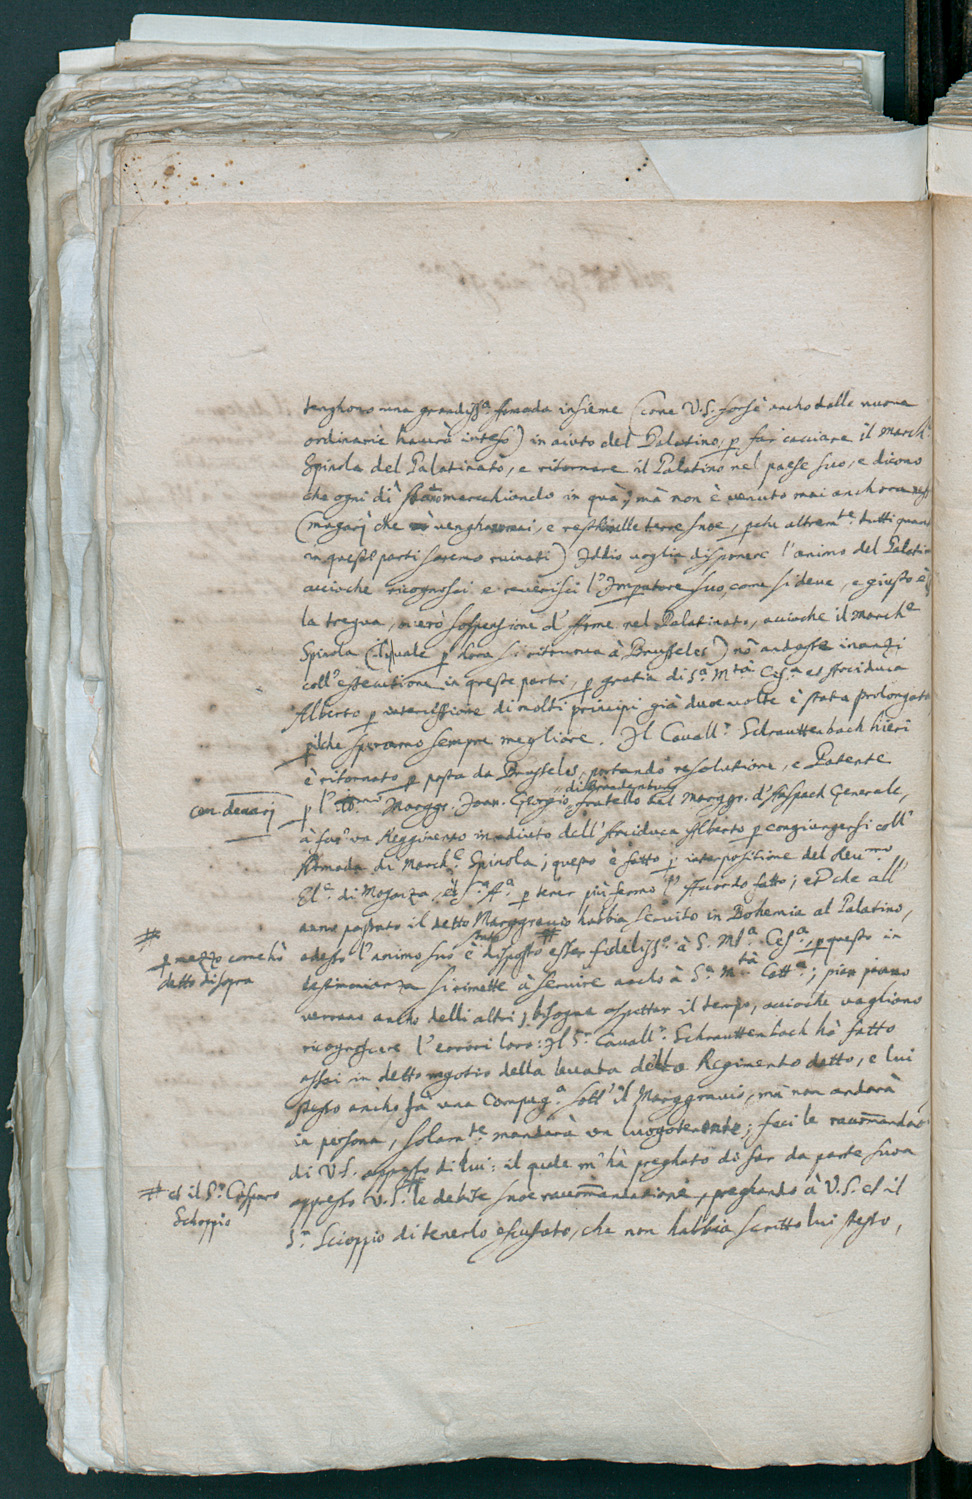 tenghono una grandiss.a armada insieme (come V.S. forse ancho dalle nuove
ordinarie haurà inteso) in aiuto del Palatino, p far cacciare il March.e
Spinola del Palatinato, e ritornare il Palatino nel paese suo, e dicono
che ogni dì stano marchiando in quà, mà non è venuto mai anchora
(magari che venghono mai, e restino nelle terre sue, altrem.te tutti quan
in queste parti saremo ruinati) Iddio voglia disponere l'animo del Palatin
accioche ricognosci e reverisci l'Imperatore suo, come si deve, e giusto è
la tregua, overò sospensione d'Arme nel Palatinato, acioche il March.e
Spinola (il quale p hora si ritrouova à Brusseles) nō andasse inanzi
coll'essecutione in queste parti, p gratia di S.a M.tà Ces.a et Arciduca
Alberto p intercessione di molti principi già due volte è stata prolongata
pilche speramo sempre megliore. Il Cavall.r Schrauttenbach hieri
è ritornato p posta da Brusseles, portando resolutione, e Patente
di Brandenburg
p l' Ill.mo Marggr. Joan. Georgio, fratello del Marggr. d'Anspach Generale,
con denarj
à far un Reggimento in adiuto dell'Arciduca Alberto p congiungersi coll'
Armada di March.e Spinola; questo è fatto p interpositione del Reu.mo
El.e di Moganza, p tener più fermo l'Accordo fatto; et che all'
anno passato il detto Marggravio habbia servito in Bohemia al Palatino,
adesso l'animo suo è disposto esser fideliss.o à S. M.tà Ces.a, p questo in
# p mezzo come hò
detto di sopra
testimonianza si rimette à servire ancho à S.a M.tà Catt.a; pian piano
verrano ancho delli altri, bisogna aspettar il tempo, acioche vogliano
ricognoscere l'errori loro: Il S.r Cavall.r Schrauttenbach hà fatto
assai in detto negotio della levata della Regimento detto, e lui
stesso ancho fà una Compag.a sott'il Marggravio, mà non andarà
in persona, solam.te mandarà un luogotenente; feci le racōmandat
di V.S. appresso di lui: il quale m'hà preghato di far da parte sua
appresso V.S. # le debite sue racōmandatione, preghando à V.S. et il
# et il S.r Casparo
Schoppio
S.r Scioppio di tenerlo escusato, che non habbia scritto lui stesso,